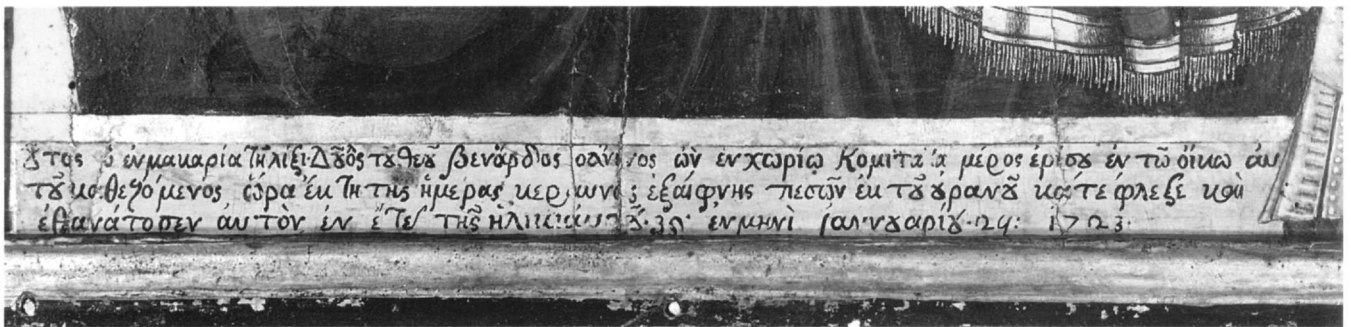 ȣ̃τος ὁ ἐν μακαρία τῇ λίξει Δȣ̃λος τȣ̃ θεȣ̃ βενάρδος ὢν ἐν χωρίῳ Κομιτα μέρος ἐν τῶ ὄικω ἀυ
τȣ̃ καθεζόμενος ὥρα ἕκτη της ἡμέρας κεραυνὸς ἐξαίφνης πεσῶν ἐκ τȣ̃ ȣ̓ρανȣ̃ κατέφλεξε καὶ
ἐθανάτοσεν ἀυτὸν ἐν ἔτει τῆς ἡλικίας ἐν μηνὶ ἰαννȣαρίȣ · 24 : 1723 ·